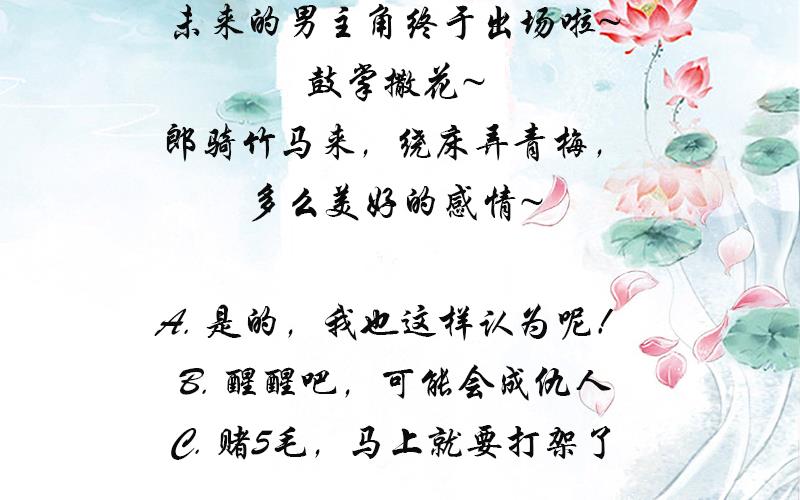 未来的男主角终于出场啦~
鼓掌撒花~
郎骑竹马来，绕床弄青梅，
多么美好的感情~
A. 是的，我也这样认为呢！
B. 醒醒吧，可能会成仇人
C. 赌5毛，马上就要打架了